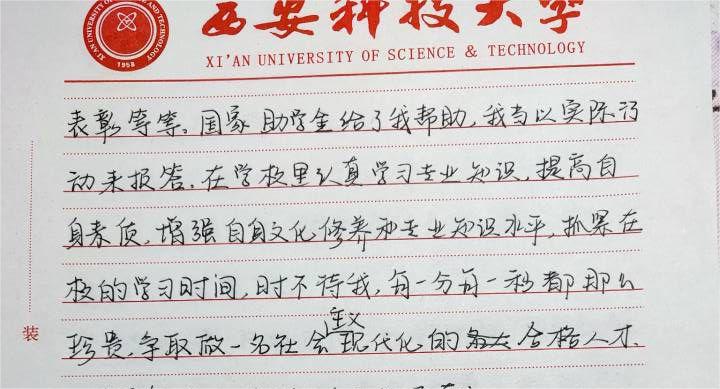 西安科技大学
XI'AN UNIVERSITY OF SCIENCE & TECHNOLOGY
XI'AN UNIVERSITY OF SCIENCE AND TECHNOLOGY
1958
表彰等等。国家助学金给了我帮助,我当以实际行
动来报答。在学校里认真学习专业知识,提高自
身素质,增强自身文化修养和专业知识水平,抓紧在
校的学习时间,时不待我,每一分每一秒都那么
珍贵,争取做一名社会主义现代化的合格人才.
装